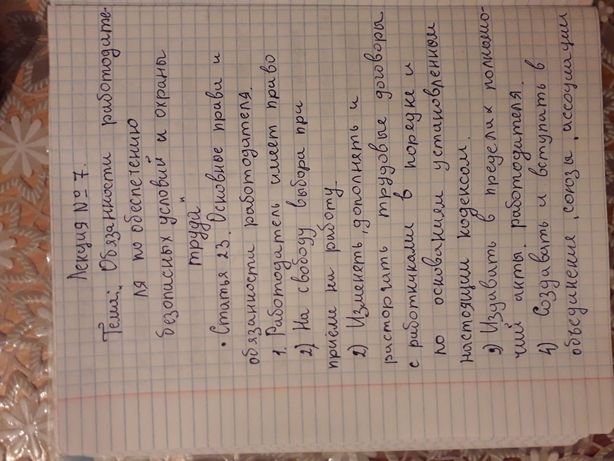 Лекция № 7.
Тема: „Обязанности работодате-
ля по обеспечению
безописных условий и охраны
труда"
• Статья 23. Основные права и
обязанности работодателя.
1. Работодатель имеет право
2) На свободу выбора при
приёме на работу.
2) Изменять, дополнять и
расторгать трудовые договоры
с работниками в порядке и
по основаниям установленном
настоящим кодексом.
3) Издавать в пределах полномо-
чий акты работодателя.
4) Создавать и вступать в
объединение, союзы, ассоциации